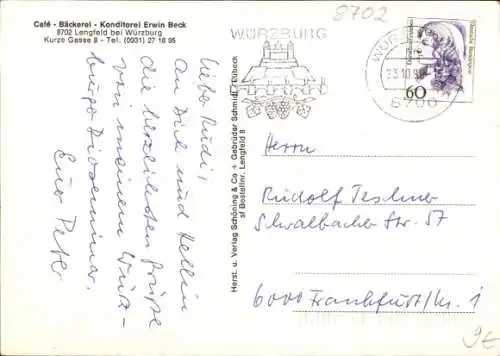 Café - Bäckerei - Konditorei Erwin Beck
8702 Lengfeld bei Würzburg
Kürze Gasse 9 - Tel. (0931) 27 18 95
8702
WÜRZBURG
23.10.
8700
60
Deutsche Bundespost
Lieber Rudi,
An Dich und Hellin
die herzlichsten Grüße
von meinem Würz-
burg
Euer Peter
Herst. u. Verlag Schöning & Co + Gebrüder Schmidt, Lübeck
sf Bestellnr. Lengfeld 8
Herrn
Rudolf Teschner
Schwalbacher Str. 57
6000 Frankfurt/M. 1
9€